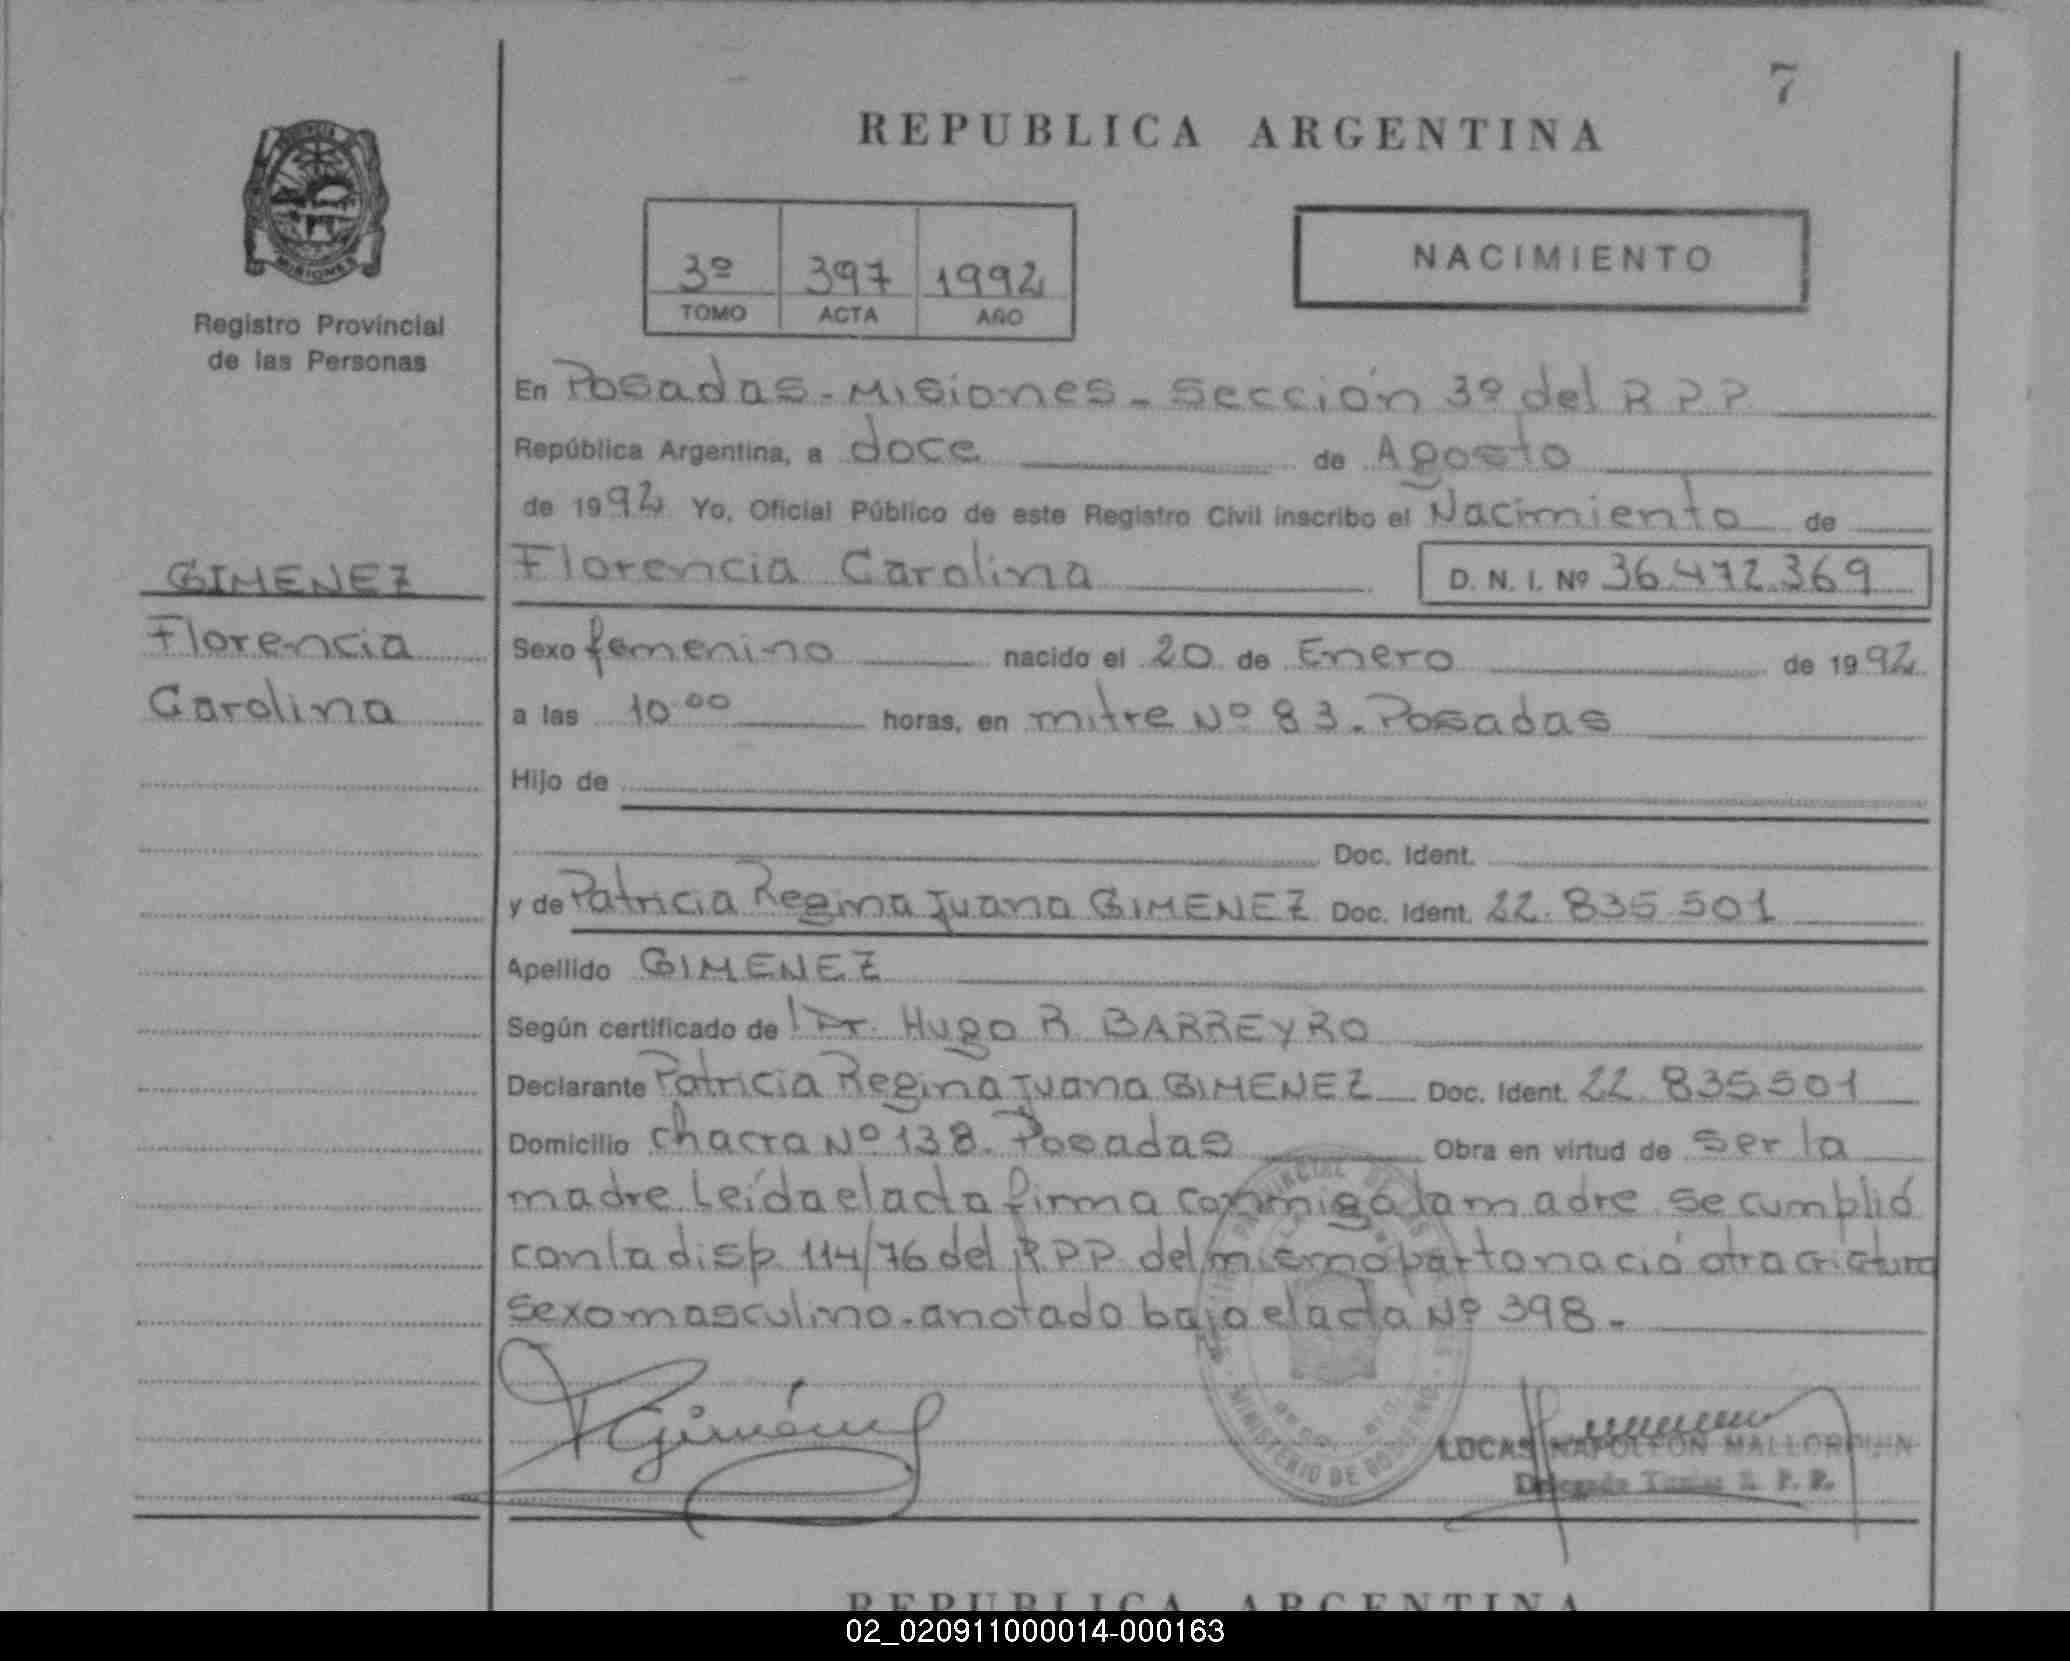 7
REPUBLICA ARGENTINA
MISIONES
Registro Provincial
de las Personas
3º 397 1992
TOMO ACTA AÑO
NACIMIENTO
En Posadas - Misiones - Sección 3º del R P P
República Argentina, a doce de Agosto
de 1992 Yo, Oficial Público de este Registro Civil inscribo el Nacimiento de
Florencia Carolina D. N. I. Nº 36.472.369
GIMENEZ
Florencia
Carolina
Sexo femenino nacido el 20 de Enero de 1992
a las 10 00 horas, en mitre Nº 83. Posadas
Hijo de
Doc. Ident.
y de Patricia Regina Juana GIMENEZ Doc. Ident. 22.835.501
Apellido GIMENEZ
Según certificado de Dr. Hugo R. BARREYRO
Declarante Patricia Regina Juana GIMENEZ Doc. Ident. 22.835.501
Domicilio chacra Nº 138. Posadas Obra en virtud de ser la
madre. Leída el acta firma conmigo la madre se cumplió
con la disp. 114/76 del R P P. del mismo parto nació otra criatura
sexo masculino. anotado bajo el acta Nº 398.-
PGiménez
MINISTERIO DE GOBIERNO
LUCAS NAPOLEON MALLORQUIN
Delegado R. P. P.
REPUBLICA ARGENTINA
02_020911000014-000163